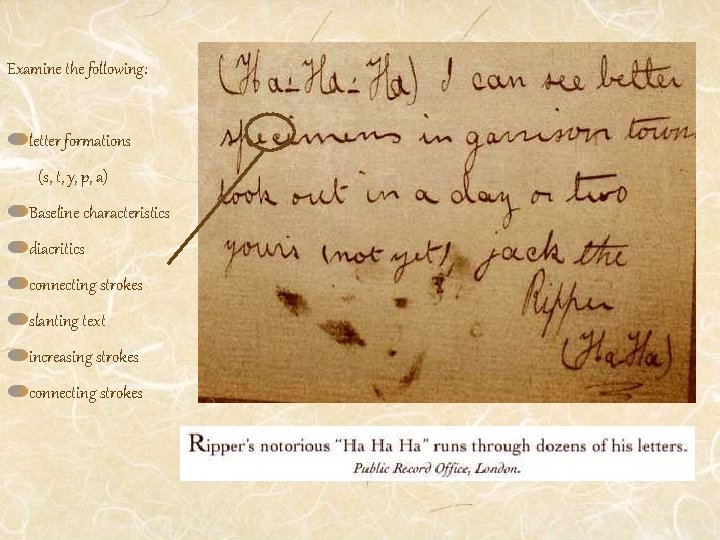 Examine the following:
letter formations
(s, t, y, p, a)
Baseline characteristics
diacritics
connecting strokes
slanting text
increasing strokes
connecting strokes
(Ha-Ha-Ha) I can see better
specimens in garrison town
look out in a day or two
yours (not yet), jack the
Ripper
(Ha Ha)
Ripper's notorious "Ha Ha Ha" runs through dozens of his letters.
Public Record Office, London.